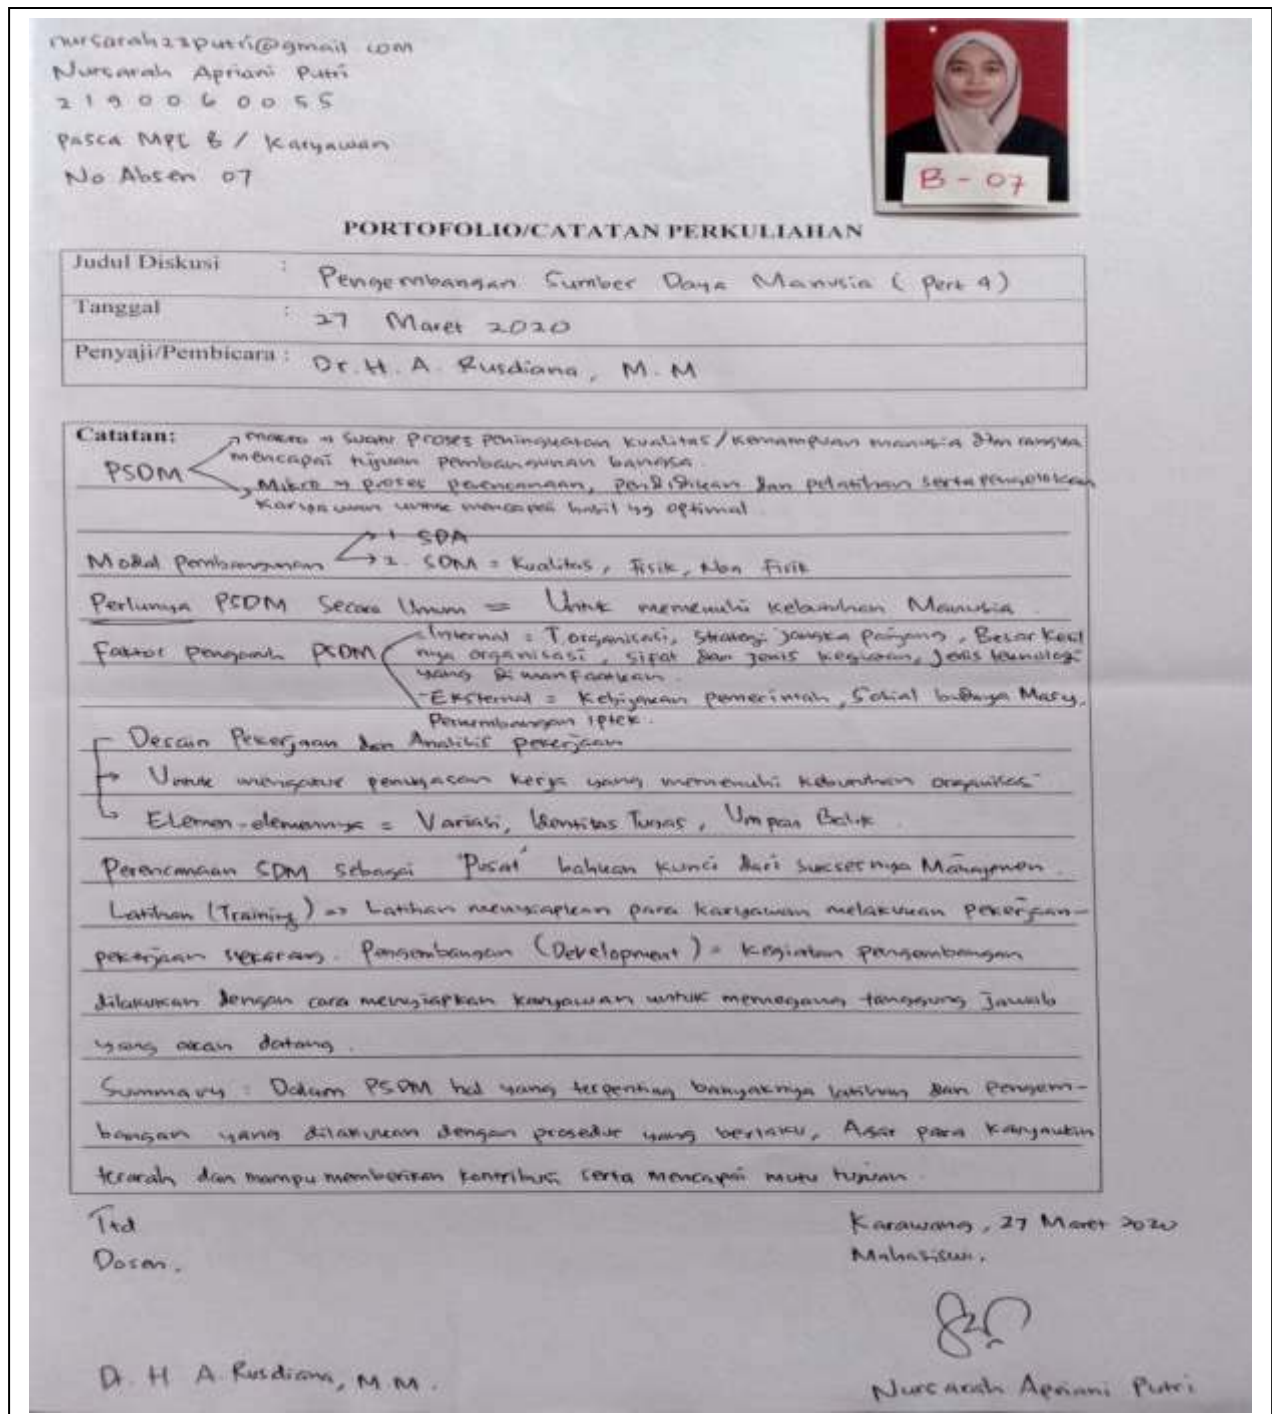 nursarah23putri@gmail com
Nursarah Apriani Putri
2190060055
Pasca MPI B / Karyawan
No Absen 07
B - 07
PORTOFOLIO/CATATAN PERKULIAHAN
Judul Diskusi : Pengembangan Sumber Daya Manusia ( Pert 4 )
Tanggal : 27 Maret 2020
Penyaji/Pembicara : Dr. H. A. Rusdiana, M. M
Catatan:
PSDM
makro → Suatu proses peningkatan kualitas/kemampuan manusia dlm rangka
mencapai tujuan pembangunan bangsa.
Mikro → proses perencanaan, pendidikan dan pelatihan serta pengelolaan
Karyawan untuk mencapai hasil yg optimal.
Modal Pembangunan
1. SDA
2. SDM = Kualitas, Fisik, Non Fisik
Perlunya PSDM Secara Umum = Untuk memenuhi kebutuhan Manusia.
Faktor Pengaruh PSDM
- Internal = T.organisasi, strategi jangka panjang, Besar kecil
nya organisasi, sifat dan jenis kegiatan, Jenis teknologi
yang dimanfaatkan.
- Eksternal = Kebijakan pemerintah, Sosial budaya Masy,
Perkembangan iptek.
Desain Pekerjaan dan Analisis pekerjaan
→ Untuk mengatur penugasan kerja yang memenuhi kebutuhan organisasi
→ Elemen-elemennya = Variasi, Identitas Tugas, Umpan Balik.
Perencanaan SDM sebagai "Pusat" bahkan kunci dari suksesnya Manajemen.
Latihan (Training) => Latihan menyiapkan para karyawan melakukan pekerjaan-
pekerjaan sekarang. Pengembangan (Development) = kegiatan pengembangan
dilakukan dengan cara menyiapkan karyawan untuk memegang tanggung jawab
yang akan datang.
Summary : Dalam PSDM hal yang terpenting banyaknya latihan dan Pengem-
bangan yang dilakukan dengan prosedur yang berlaku, Agar para Karyawan
terarah dan mampu memberikan kontribusi serta mencapai mutu tujuan.
Ttd
Dosen.
Karawang, 27 Maret 2020
Mahasiswi.
Dr. H A. Rusdiana, M.M.
Nursarah Apriani Putri